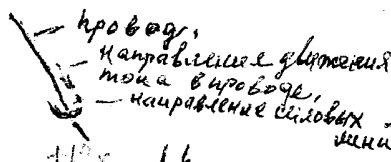 провод,
направления движения
тока в проводе,
направление силовых
лини